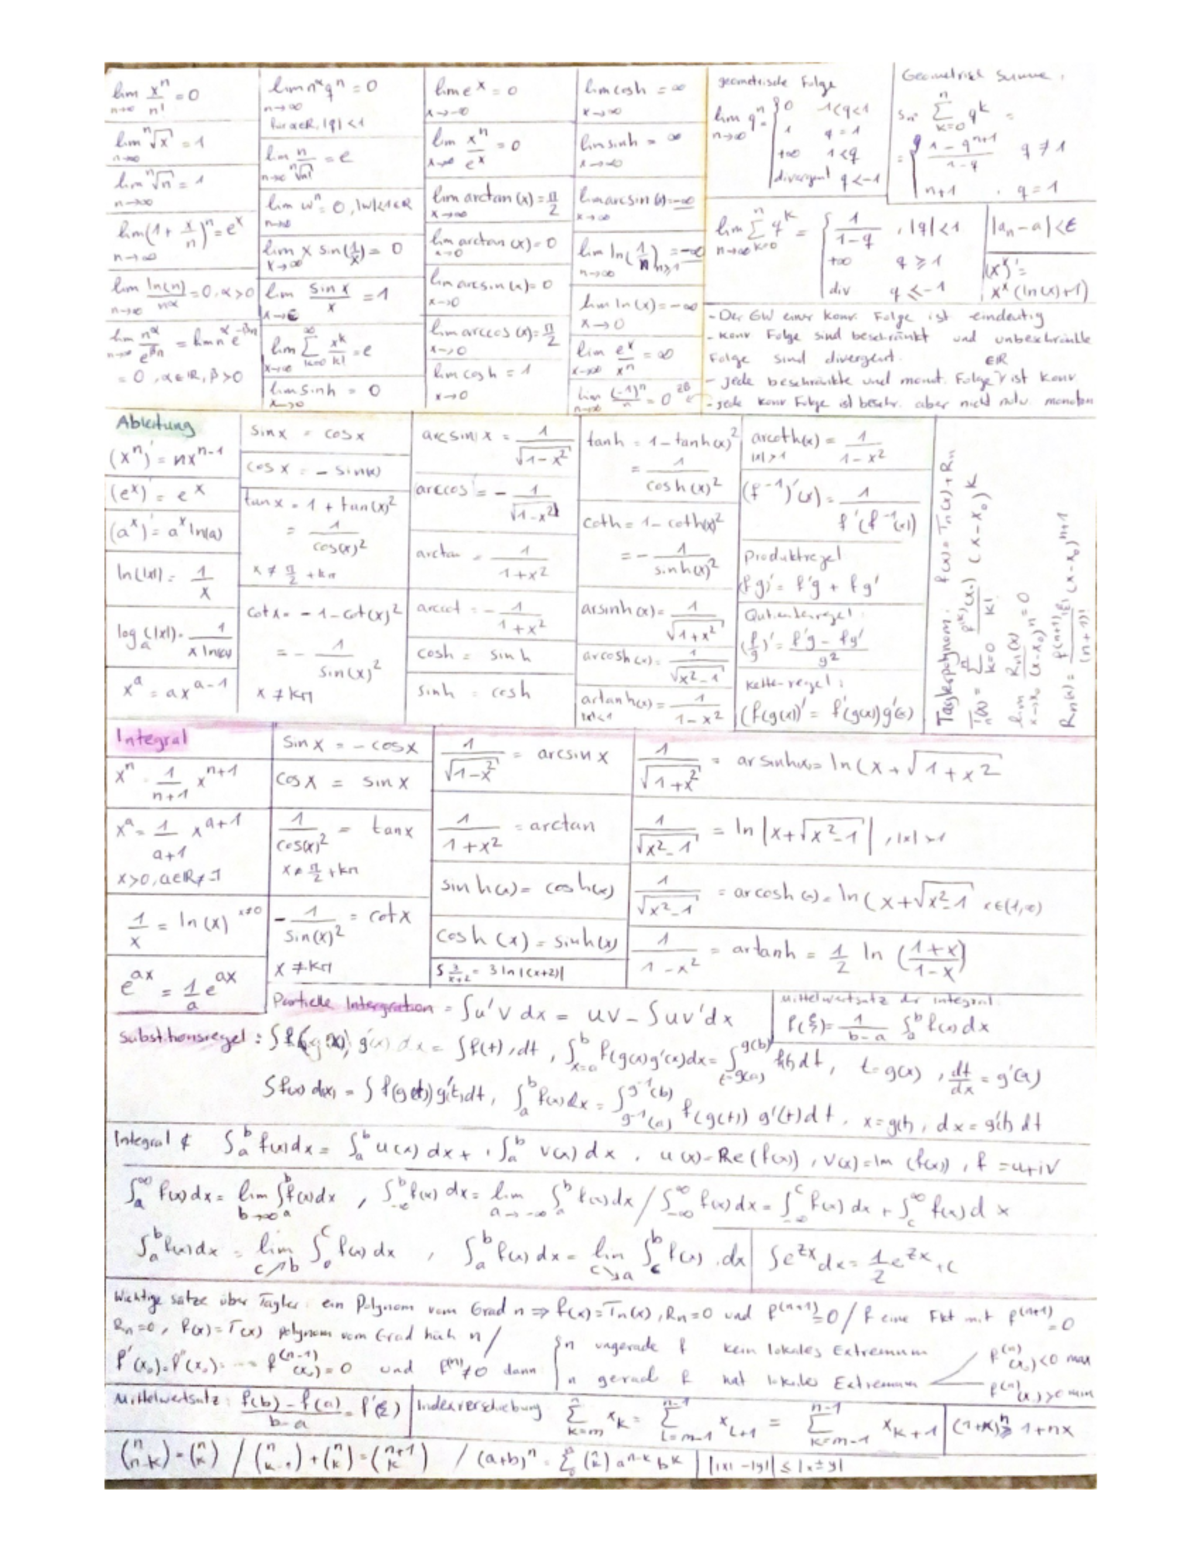 lim n→∞ x^n/n! = 0
lim n→∞ ⁿ√x = 1
lim n→∞ ⁿ√n = 1
lim n→∞ (1 + x/n)^n = e^x
lim n→∞ ln(n)/n^α = 0, α>0
lim n→∞ n^α/e^βn = lim n^α e^-βn
= 0, α∈ℝ, β>0
lim n→∞ n^α q^n = 0
für α∈ℝ, |q|<1
lim n→∞ n/ⁿ√n! = e
lim n→∞ w^n = 0, |w|<1
lim x→∞ x sin(1/x) = 0
lim sin x/x = 1
lim Σ k=0 ∞ x^k/k! = e
lim sinh = 0
x→0
lim e^x = 0
x→-∞
lim x→∞ x^n/e^x = 0
lim x→∞ arctan(x) = π/2
lim x→0 arctan(x) = 0
lim x→0 arcsin(x) = 0
lim x→0 arccos(x) = π/2
lim cosh = 1
x→0
lim cosh = ∞
x→∞
lim sinh = ∞
x→∞
lim arcsin(x) = -∞
x→∞
lim n→∞ ln(1/n) = -∞
n≥1
lim ln(x) = -∞
x→0
lim x→∞ e^x/x^n = ∞
lim n→∞ (-1)^n/n = 0
geometrische Folge
lim n→∞ q^n = { 0 1<q<1
1 q = 1
+∞ 1<q
divergent q<-1
Geometrisch Summe:
Sn: Σ k=0 n q^k =
= { 1 - q^n+1 / 1 - q q ≠ 1
n+1, q = 1
lim n→∞ Σ k=0 n q^k = { 1/1-q, |q|<1
+∞ q ≥ 1
div q ≤ -1
|an - a| < ε
(x^x)' =
x^x (ln(x)+1)
- Der GW einer konv. Folge ist eindeutig
- konv Folge sind beschränkt und unbeschränkte
Folge sind divergent. ∈ℝ
- jede beschränkte und monot. Folge ist konv
- jede konv Folge ist beschr. aber nicht notw. monoton
Ableitung
(x^n)' = nx^n-1
(e^x)' = e^x
(a^x)' = a^x ln(a)
ln(|x|) = 1/x
log a (|x|) = 1/x ln(a)
x^a = ax^a-1
sin x = cos x
cos x = - sin(x)
tan x = 1 + tan(x)²
= 1/cos(x)²
x ≠ π/2 + kπ
cot x = -1 - cot(x)²
= - 1/sin(x)²
x ≠ kπ
arcsin x = 1/√1-x²
arccos = - 1/√1-x²
arctan = 1/1+x²
arccot = - 1/1+x²
cosh = sinh
sinh = cosh
tanh = 1 - tanh(x)²
= 1/cosh(x)²
coth = 1 - coth(x)²
= - 1/sinh(x)²
arsinh(x) = 1/√1+x²
arcosh(x) = 1/√x²-1
artanh(x) = 1/1-x²
|x|<1
arcoth(x) = 1/1-x²
|x|>1
(f^-1)'(x) = 1/f'(f^-1(x))
Produktregel
(fg)' = f'g + fg'
Qutientenregel:
(f/g)' = f'g - fg'/g²
Kettenregel:
(f(g(x))' = f'(g(x))g'(x)
Taylorpolynom: f(x) = Tn(x) + Rn
Tn(x) = Σ k=0 n f^(k)(x0)/k! (x - x0)^k
lim x→x0 Rn(x)/(x-x0)^n = 0
Rn(x) = f^(n+1)(ξ)/(n+1)! (x - x0)^n+1
Integral
x^n = 1/n+1 x^n+1
x^a = 1/a+1 x^a+1
x>0, a∈ℝ≠-1
1/x = ln(x) x≠0
e^ax = 1/a e^ax
sin x = - cos x
cos x = sin x
1/cos(x)² = tan x
x ≠ π/2 + kπ
- 1/sin(x)² = cot x
x ≠ kπ
1/√1-x² = arcsin x
1/1+x² = arctan
sinh(x) = cosh(x)
cosh(x) = sinh(x)
∫ 3/x+2 = 3 ln|(x+2)|
1/√1+x² = arsinh(x) = ln(x + √1+x²
1/√x²-1 = ln|x+√x²-1|, |x|>1
1/√x²-1 = arcosh(x) = ln(x+√x²-1 x∈(1,∞)
1/1-x² = artanh = 1/2 ln(1+x/1-x)
Partielle Intergration = ∫u'v dx = uv - ∫uv'dx
Mittelwertsatz der Integral
f(ξ) = 1/b-a ∫a^b f(x) dx
Substitionsregel: ∫f(g(x)) g'(x) dx = ∫f(t), dt, ∫x=a^b f(g(x)g'(x)dx = ∫t=g(a)^g(b) f(t) dt, t=g(x), dt/dx = g'(x)
∫f(x) dx = ∫f(g(t)) g'(t)dt, ∫a^b f(x) dx = ∫g^-1(a)^g^-1(b) f(g(t)) g'(t) dt, x = g(t), dx = g'(t) dt
Integral ¢ ∫a^b f(x)dx = ∫a^b u(x) dx + i∫a^b v(x) dx, u(x)=Re(f(x)), v(x)=Im(f(x)), f = u+iv
∫a^∞ f(x) dx = lim b→∞ ∫a^b f(x) dx, ∫-∞^b f(x) dx = lim a→-∞ ∫a^b f(x) dx / ∫-∞^∞ f(x) dx = ∫-∞^c f(x) dx + ∫c^∞ f(x) dx
∫a^b f(x) dx = lim c↗b ∫a^c f(x) dx, ∫a^b f(x) dx = lim c↘a ∫c^b f(x) dx
∫e^zx dx = 1/z e^zx + C
Wichtige sätze über Tayler: ein Polynom vom Grad n ⇒ f(x) = Tn(x), Rn=0 und f^(n+1) = 0 / f eine Fkt mit f^(n+1) = 0
Rn=0, f(x) = T(x) polynom vom Grad höch n /
f'(x0) = f''(x0) = ... f^(n-1)(x0) = 0 und f^(n) ≠ 0 dann { n ungerade f kein lokales Extremum
n gerad f hat lokales Extremum
f^(n)(x0)<0 max
f^(n)(x0)>0 min
Mittelwertsatz: f(b) - f(a)/b-a = f'(ξ)
Indexverschiebung Σ k=m n xk = Σ l=m-1 n-1 xl+1 = Σ k=m-1 n-1 xk+1
(1+x)^n ≥ 1+nx
(n n-k) = (n k) / (n k-1) + (n k) = (n+1 k) / (a+b)^n = Σ (n k) a^n-k b^k
||x| - |y|| ≤ |x ± y|